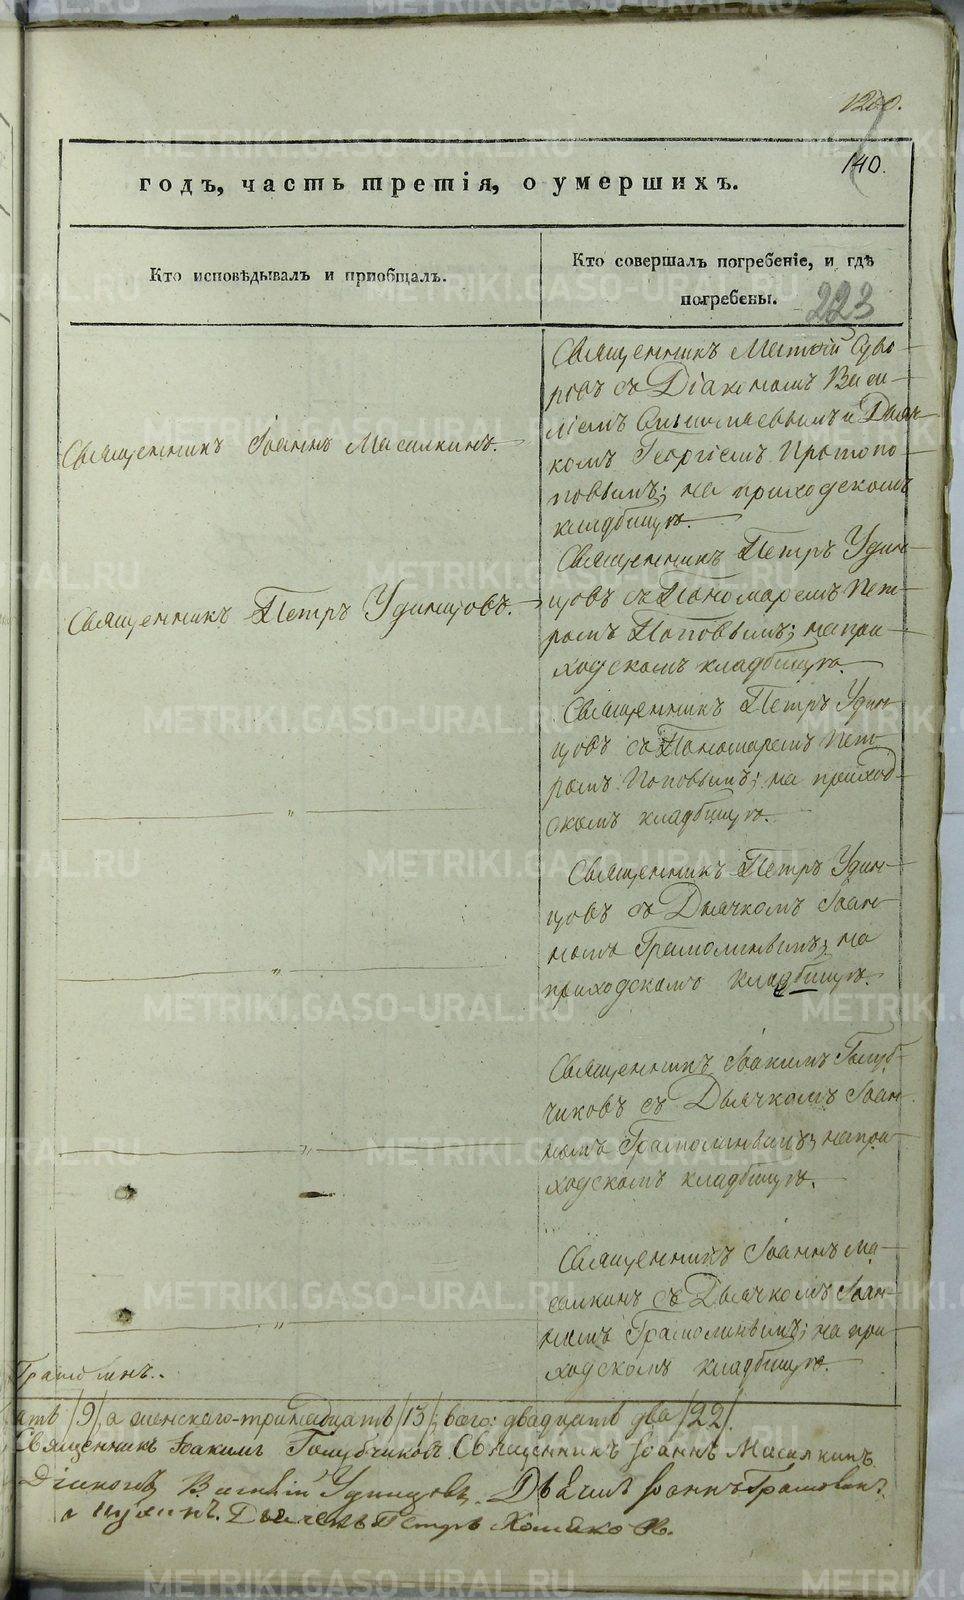 1200.
140.
годъ, часть третія, о умершихъ.
Кто исповѣдывалъ и пріобщалъ.
Кто совершалъ погребеніе, и гдѣ
погребены.
223
Священникъ Іоаннъ Масалкинъ.
Священникъ Матѳій Суво-
ровъ съ Діакономъ Васи-
ліемъ и Дьяч-
комъ Георгіемъ Протопо-
повымъ; на приходскомъ
кладбищѣ.
Священникъ Петръ Удинцовъ.
Священникъ Петръ Удин-
цовъ съ Пономаремъ Пет-
ромъ Поповымъ; на при-
ходскомъ кладбищѣ.
"
Священникъ Петръ Удин-
цовъ съ Пономаремъ Пет-
ромъ Поповымъ; на приход-
скомъ кладбищѣ.
"
Священникъ Петръ Удин-
цовъ съ Дьячкомъ Іоан-
номъ Грамолинымъ; на
приходскомъ кладбищѣ.
"
Священникъ Іоакимъ Голуб-
чиковъ съ Дьячкомъ Іоан-
номъ Грамолинымъ; на при-
ходскомъ кладбищѣ.
"
Священникъ Іоаннъ Ма-
салкинъ съ Дьячкомъ Іоан-
номъ Грамолинымъ; на при-
ходскомъ кладбищѣ.
Грамолинъ.
ать /9/, а женскаго-тринадцать /13/, всего: двадцать два /22/.
Священникъ Іоакимъ Голубчиковъ. Священникъ Іоаннъ Масалкинъ
Діаконъ Василій Удинцовъ. Дьячекъ Іоаннъ Грамолинъ
Дьячекъ Петръ Хомяковъ.
METRIKI.GASO-URAL.RU